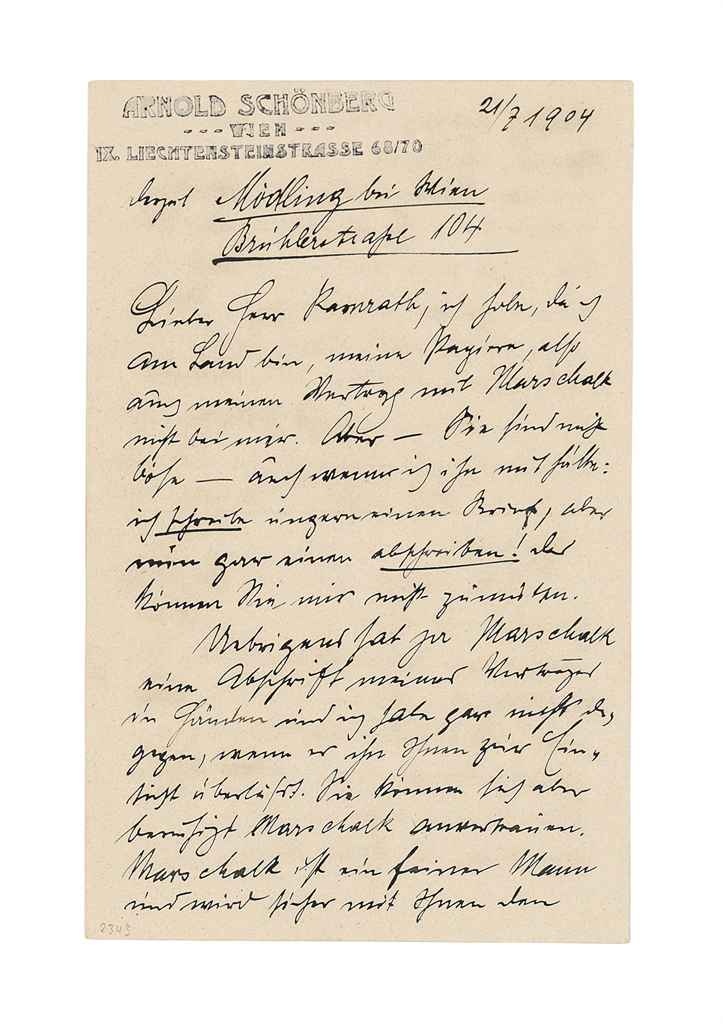 ARNOLD SCHÖNBERG
--- WIEN ---
IX. LIECHTENSTEINSTRASSE 68/70
21/7 1904
derzeit Mödling bei Wien
Brühlerstraße 104
Lieber Herr Kamrath, ich habe, da ich
am Land bin, meine Papiere, also
auch meinen Vertrag mit Marschalk
nicht bei mir. Aber — Sie sind nicht
böse — auch wenn ich ihn mithätte:
ich schreibe ungern einen Brief, aber
nun gar einen abschreiben! das
können Sie mir nicht zumuten.
Uebrigens hat ja Marschalk
eine Abschrift meines Vertrages
in Händen und ich habe gar nichts da-
gegen, wenn er ihn Ihnen zur Ein-
sicht überläßt. Sie können sich aber
beruhigt Marschalk anvertrauen.
Marschalk ist ein feiner Mann
und wird sicher mit Ihnen den
2345